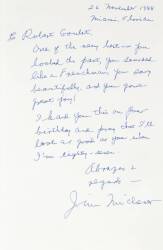 26 November 1988
Miami, Florida
To Robert Goulet
One of the very best — you
looked the part, you sounded
like a Frenchman, you sang
beautifully, and you gave
great joy!
I send you this on your
birthday and pray that I'll
look as good as you when
I'm eighty-seven
Abrazos &
regards —